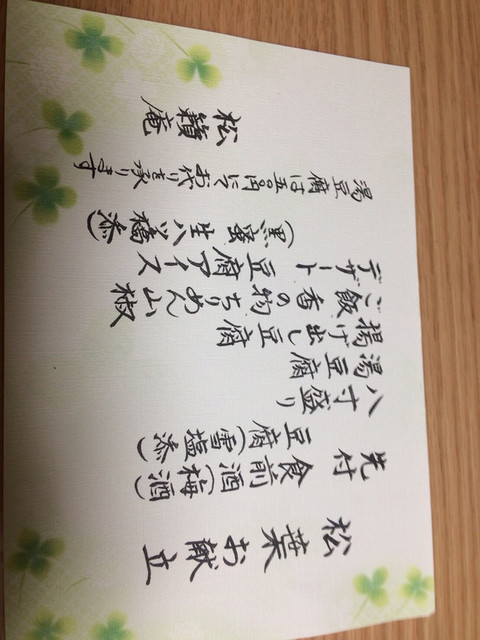 松葉お献立
先付 食前酒(梅酒)
豆腐(雪塩添)
八寸盛り
湯豆腐
揚げ出し豆腐
ご飯 香の物 ちりめん山椒
デザート 豆腐アイス
(黒蜜 生八ツ橋 添)
湯豆腐は五〇〇円にてお代りを承ります
松籟庵